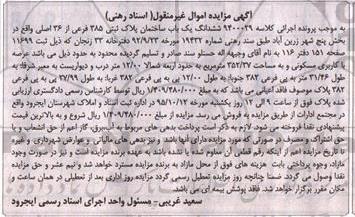 آگهی مزایده اموال غیرمنقول( اسناد رهنی)
به موجب پرونده اجرائی کلاسه ۹۴۰۰۰۲۹ ششدانگ یک باب ساختمان پلاک ثبتی ۳۸۵ فرعی از ۳۶ اصلی واقع در
بخش پنج شهر زرین آباد طبق سند رهنی شماره ۱۹۴۳۲ مورخه ۹۲/۹/۲۷ دفترخانه ۳۲ زنجان که ذیل ثبت ۱۱۶۹۹
صفحه ۱۵۱ دفتر ۱۱۶ به نام آقای وجیهه اله حسنلو سند صادر و تسلیم گردیده محدود به حدود ذیل می باشد عرصه
با کاربری مسکونی و به مساحت ۳۵۲/۳۷ مترمربع به حدود اربعه شمالا ۱۲/۰۰ متر درب و دیوارست به معبر شرقا: به
طول ۳۱/۴۶ متر به فرعی ۳۸۲ جنوبا: به طول ۱۲/۰۰ متر به فرعی ۳۸۲ غربا: به طول ۲۷/۹۹ پی به پی فرعی
۳۸۲ پلاک موصوف فاقد اعیانی می باشد که به مبلغ ۱/۴۰۹/۴۸۰/۰۰۰ ریال توسط کارشناس رسمی دادگستری ارزیابی
شده پلاک فوق از ساعت ۹ الی ۱۲ روز یکشنبه مورخه ۹۵/۱۰/۱۲ در اداره ثبت اسناد و املاک شهرستان ایجرود واقع
در مجتمع ادارات از طریق مزایده به فروش می رسد. مزایده از مبلغ ۱/۴۰۹/۴۸۰/۰۰۰ ریال شروع و به بالاترین قیمت
پیشنهادی نقدا فروخته می شود. لازم به ذکر است پرداخت بدهی های مربوط به آب،برق، گاز اعم از حق انشعاب و یا
حق اشتراک و مصرف در صورتی که مورد مزایده دارای آنها باشد و نیز بدهی های مالیاتی و عوارض شهرداری و غیره
تا تاریخ مزایده اعم از اینکه رقم قطعی آن معلوم شده یا نشده باشد به عهده برنده مزایده است و نیز در صورت وجود
مازاد، وجوه پرداختی بابت هزینه های فوق از محل مازاد به برنده مزایده مسترد خواهد شد و نیم عشر و حق مزایده
نقدا وصول می گردد. ضمنا چنانچه روز مزایده تعطیل رسمی گردد، مزایده روز اداری بعد از تعطیلی در همان ساعت و
مکان مقرر برگزار خواهد شد. فاقد پوشش بیمه ای می باشد.
سعید غریبی- مسئول واحد اجرای اسناد رسمی ایجرود